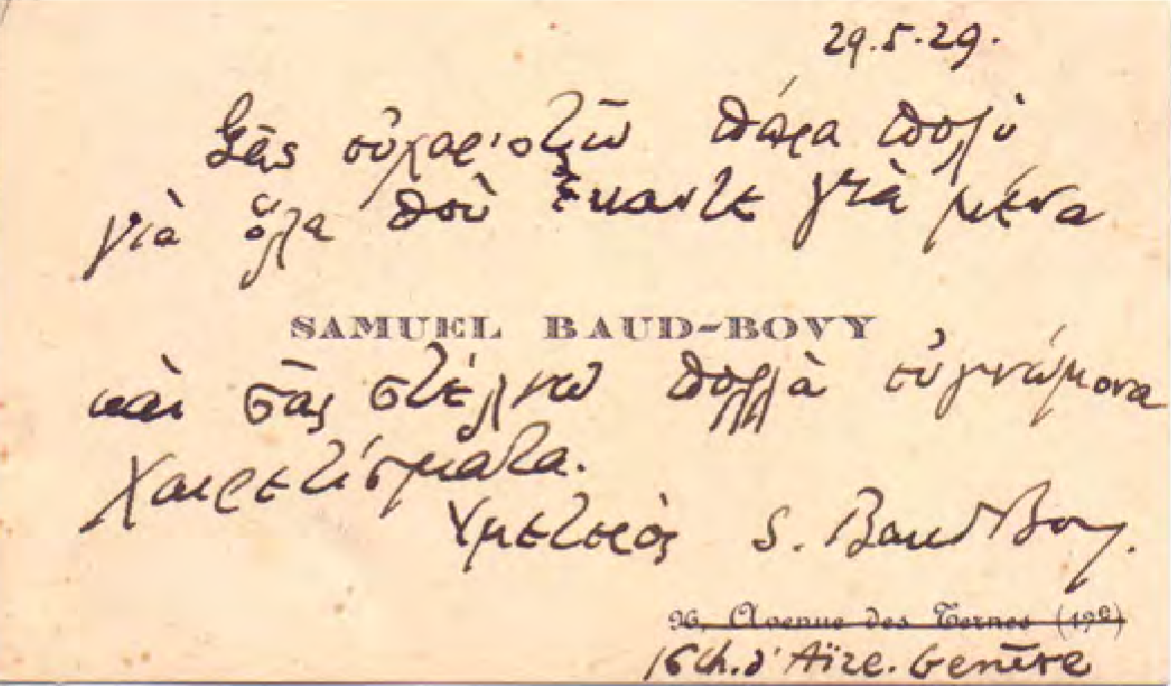 29.5.29.
Σᾶς εὐχαριστῶ πάρα πολὺ
γιὰ ὅλα ποὺ ἔκαντε γιὰ μένα
SAMUEL BAUD-BOVY
καὶ σᾶς στέλνω πολλὰ εὐγνώμονα
χαιρετίσματα.
Ὑμετερὸς S. Baud Bovy.
96, Avenue des Ternes (17e)
16 ch. d'Aïre. Genève